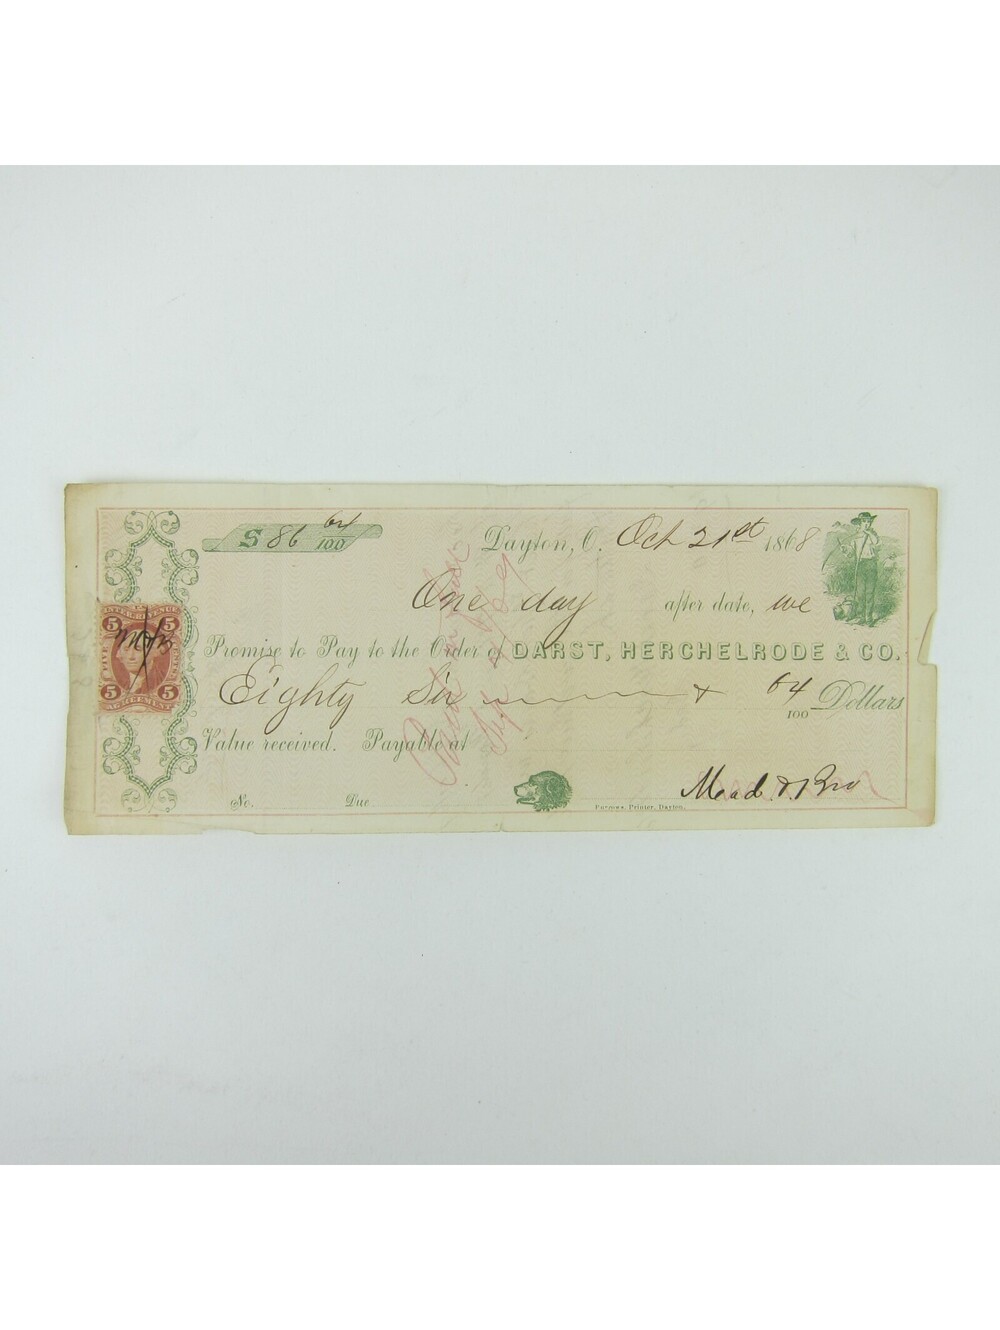 $ 86 64/100 Dayton, O. Oct 21st 1868
One day after date, we
Promise to Pay to the Order of DARST, HERCHELRODE & CO.
Eighty Six & 64/100 Dollars
Value received. Payable at
No. Due
Mead & Bro
Printer, Dayton.
INTER. REVENUE
5 5
FIVE CENTS
5 5
AGREEMENT